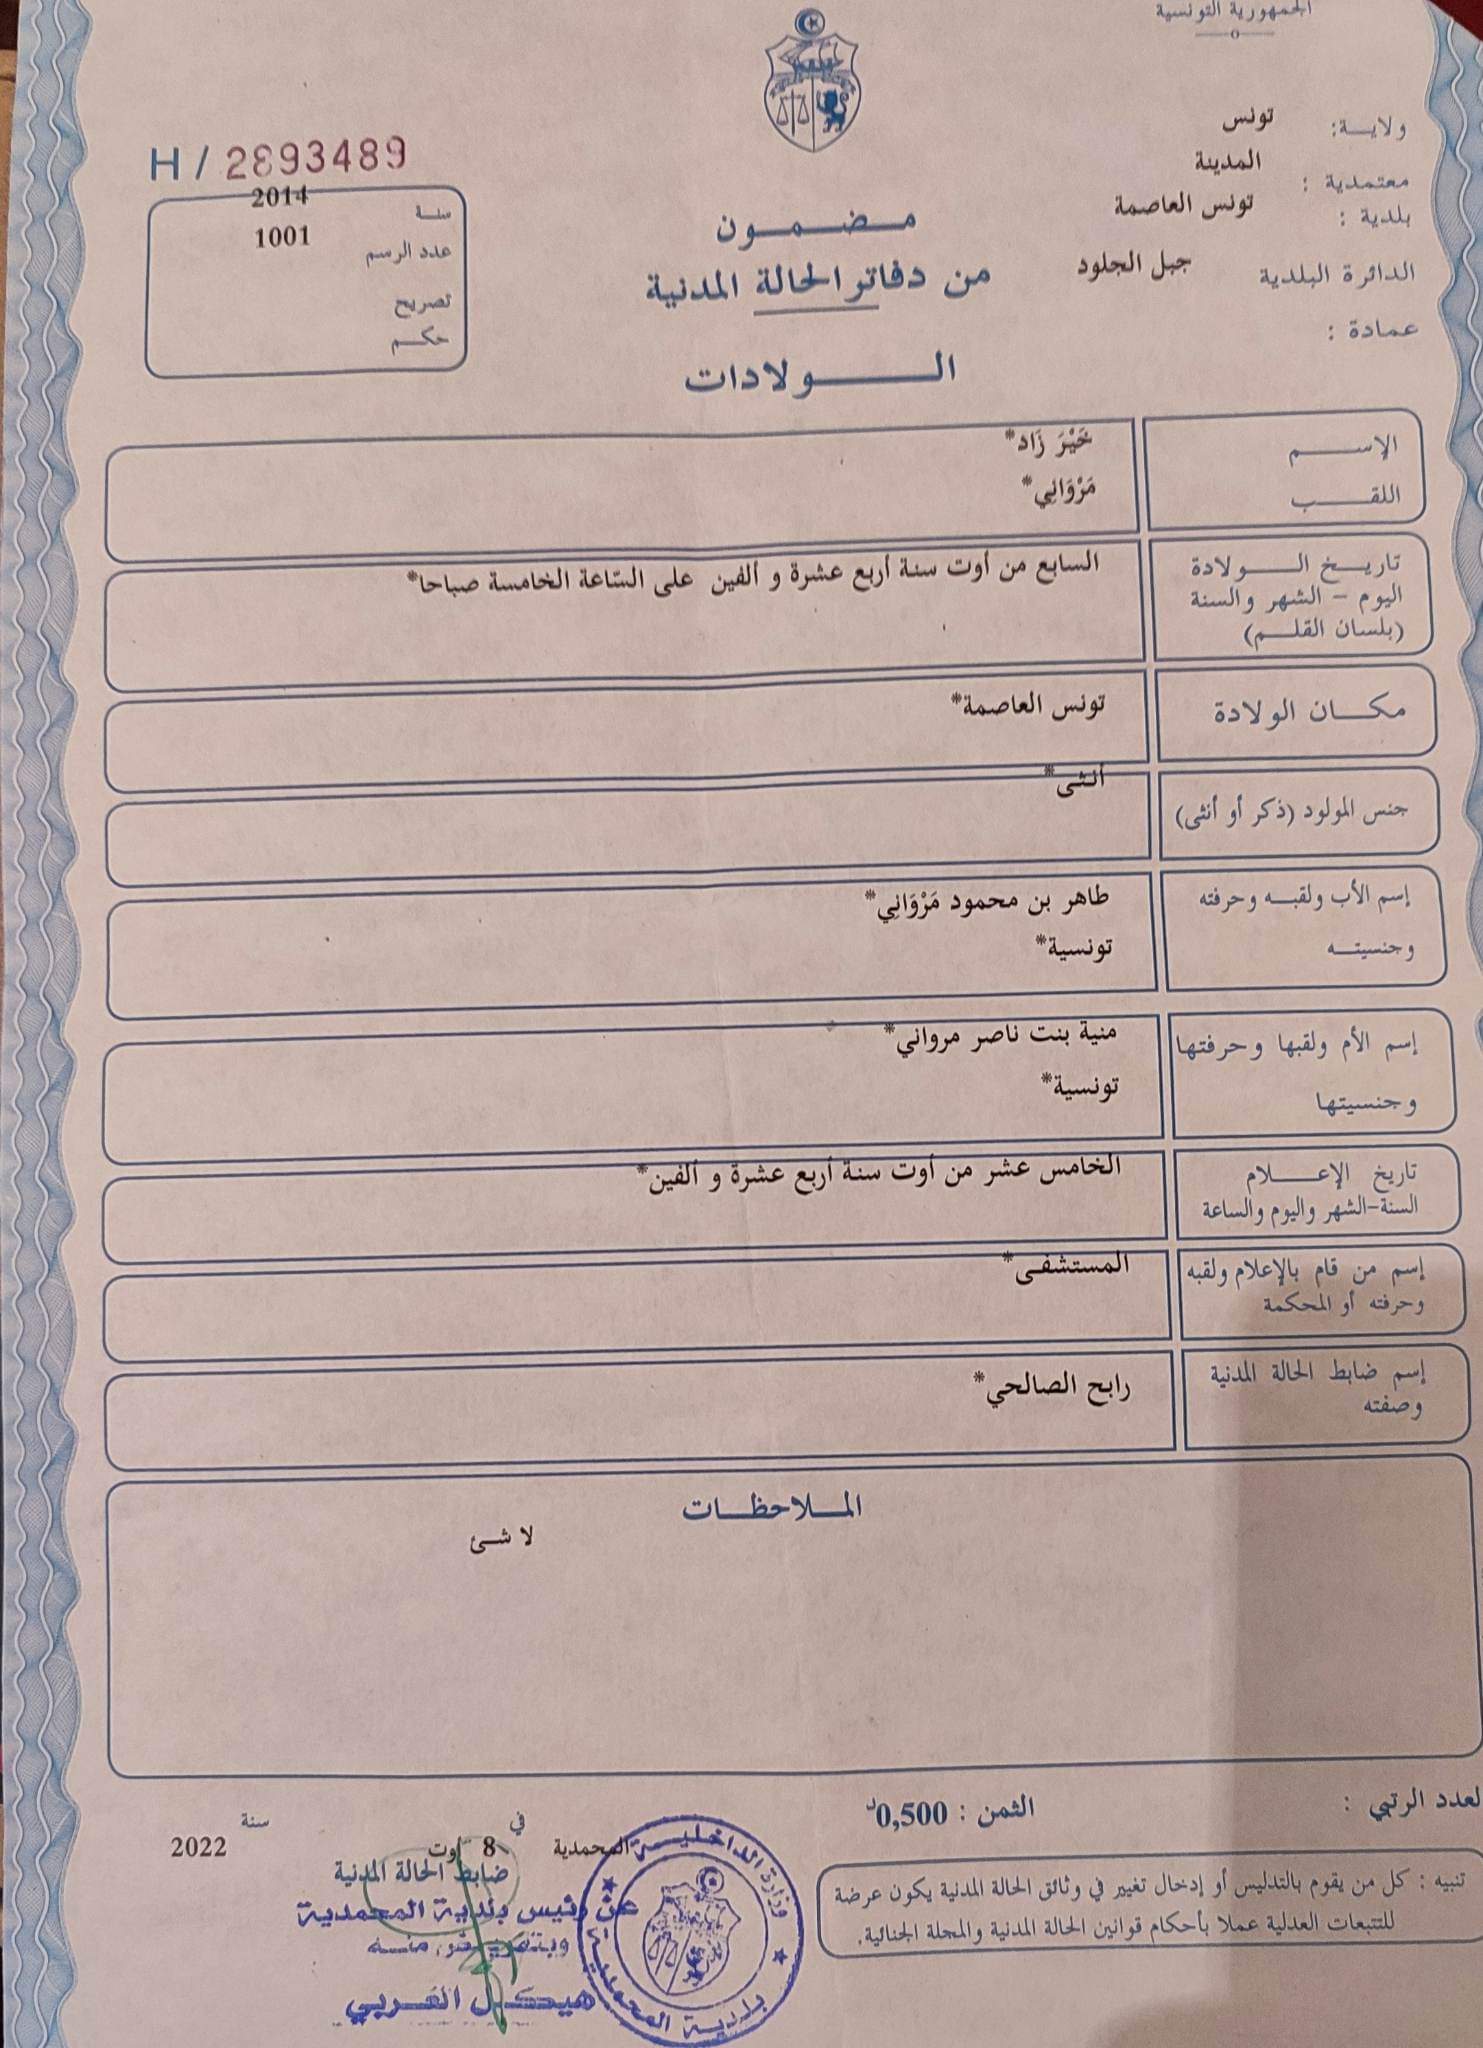 الجمهورية التونسية
ولاية: تونس
معتمدية : المدينة
بلدية : تونس العاصمة
الدائرة البلدية جبل الجلود
عمادة :
H / 2893489
سنة 2014
عدد الرسم 1001
تصريح
حكم
مضمون
من دفاتر الحالة المدنية
الولادات
الإسم خَيْرَ زَاد*
اللقب مَرْوَانِي*
تاريخ الولادة السابع من أوت سنة أربع عشرة و ألفين على السّاعة الخامسة صباحا*
اليوم - الشهر والسنة
(بلسان القلم)
مكان الولادة تونس العاصمة*
جنس المولود (ذكر أو أنثى) أنثى*
إسم الأب ولقبه وحرفته طاهر بن محمود مَرْوَانِي*
وجنسيته تونسية*
إسم الأم ولقبها وحرفتها منية بنت ناصر مرواني*
وجنسيتها تونسية*
تاريخ الإعلام الخامس عشر من أوت سنة أربع عشرة و ألفين*
السنة-الشهر واليوم والساعة
إسم من قام بالإعلام ولقبه المستشفى*
وحرفته أو المحكمة
إسم ضابط الحالة المدنية رابح الصالحي*
وصفته
الملاحظات
لا شئ
لعدد الرتبي :
الثمن : 0,500د
تنبيه : كل من يقوم بالتدليس أو إدخال تغيير في وثائق الحالة المدنية يكون عرضة
للتتبعات العدلية عملا بأحكام قوانين الحالة المدنية والمجلة الجنائية.
المحمدية في 8 أوت سنة 2022
ضابط الحالة المدنية
عن رئيس بلدية المحمدية
وبتفويض منه
هيكل العربي
وزارة الداخلية
بلدية المحمدية